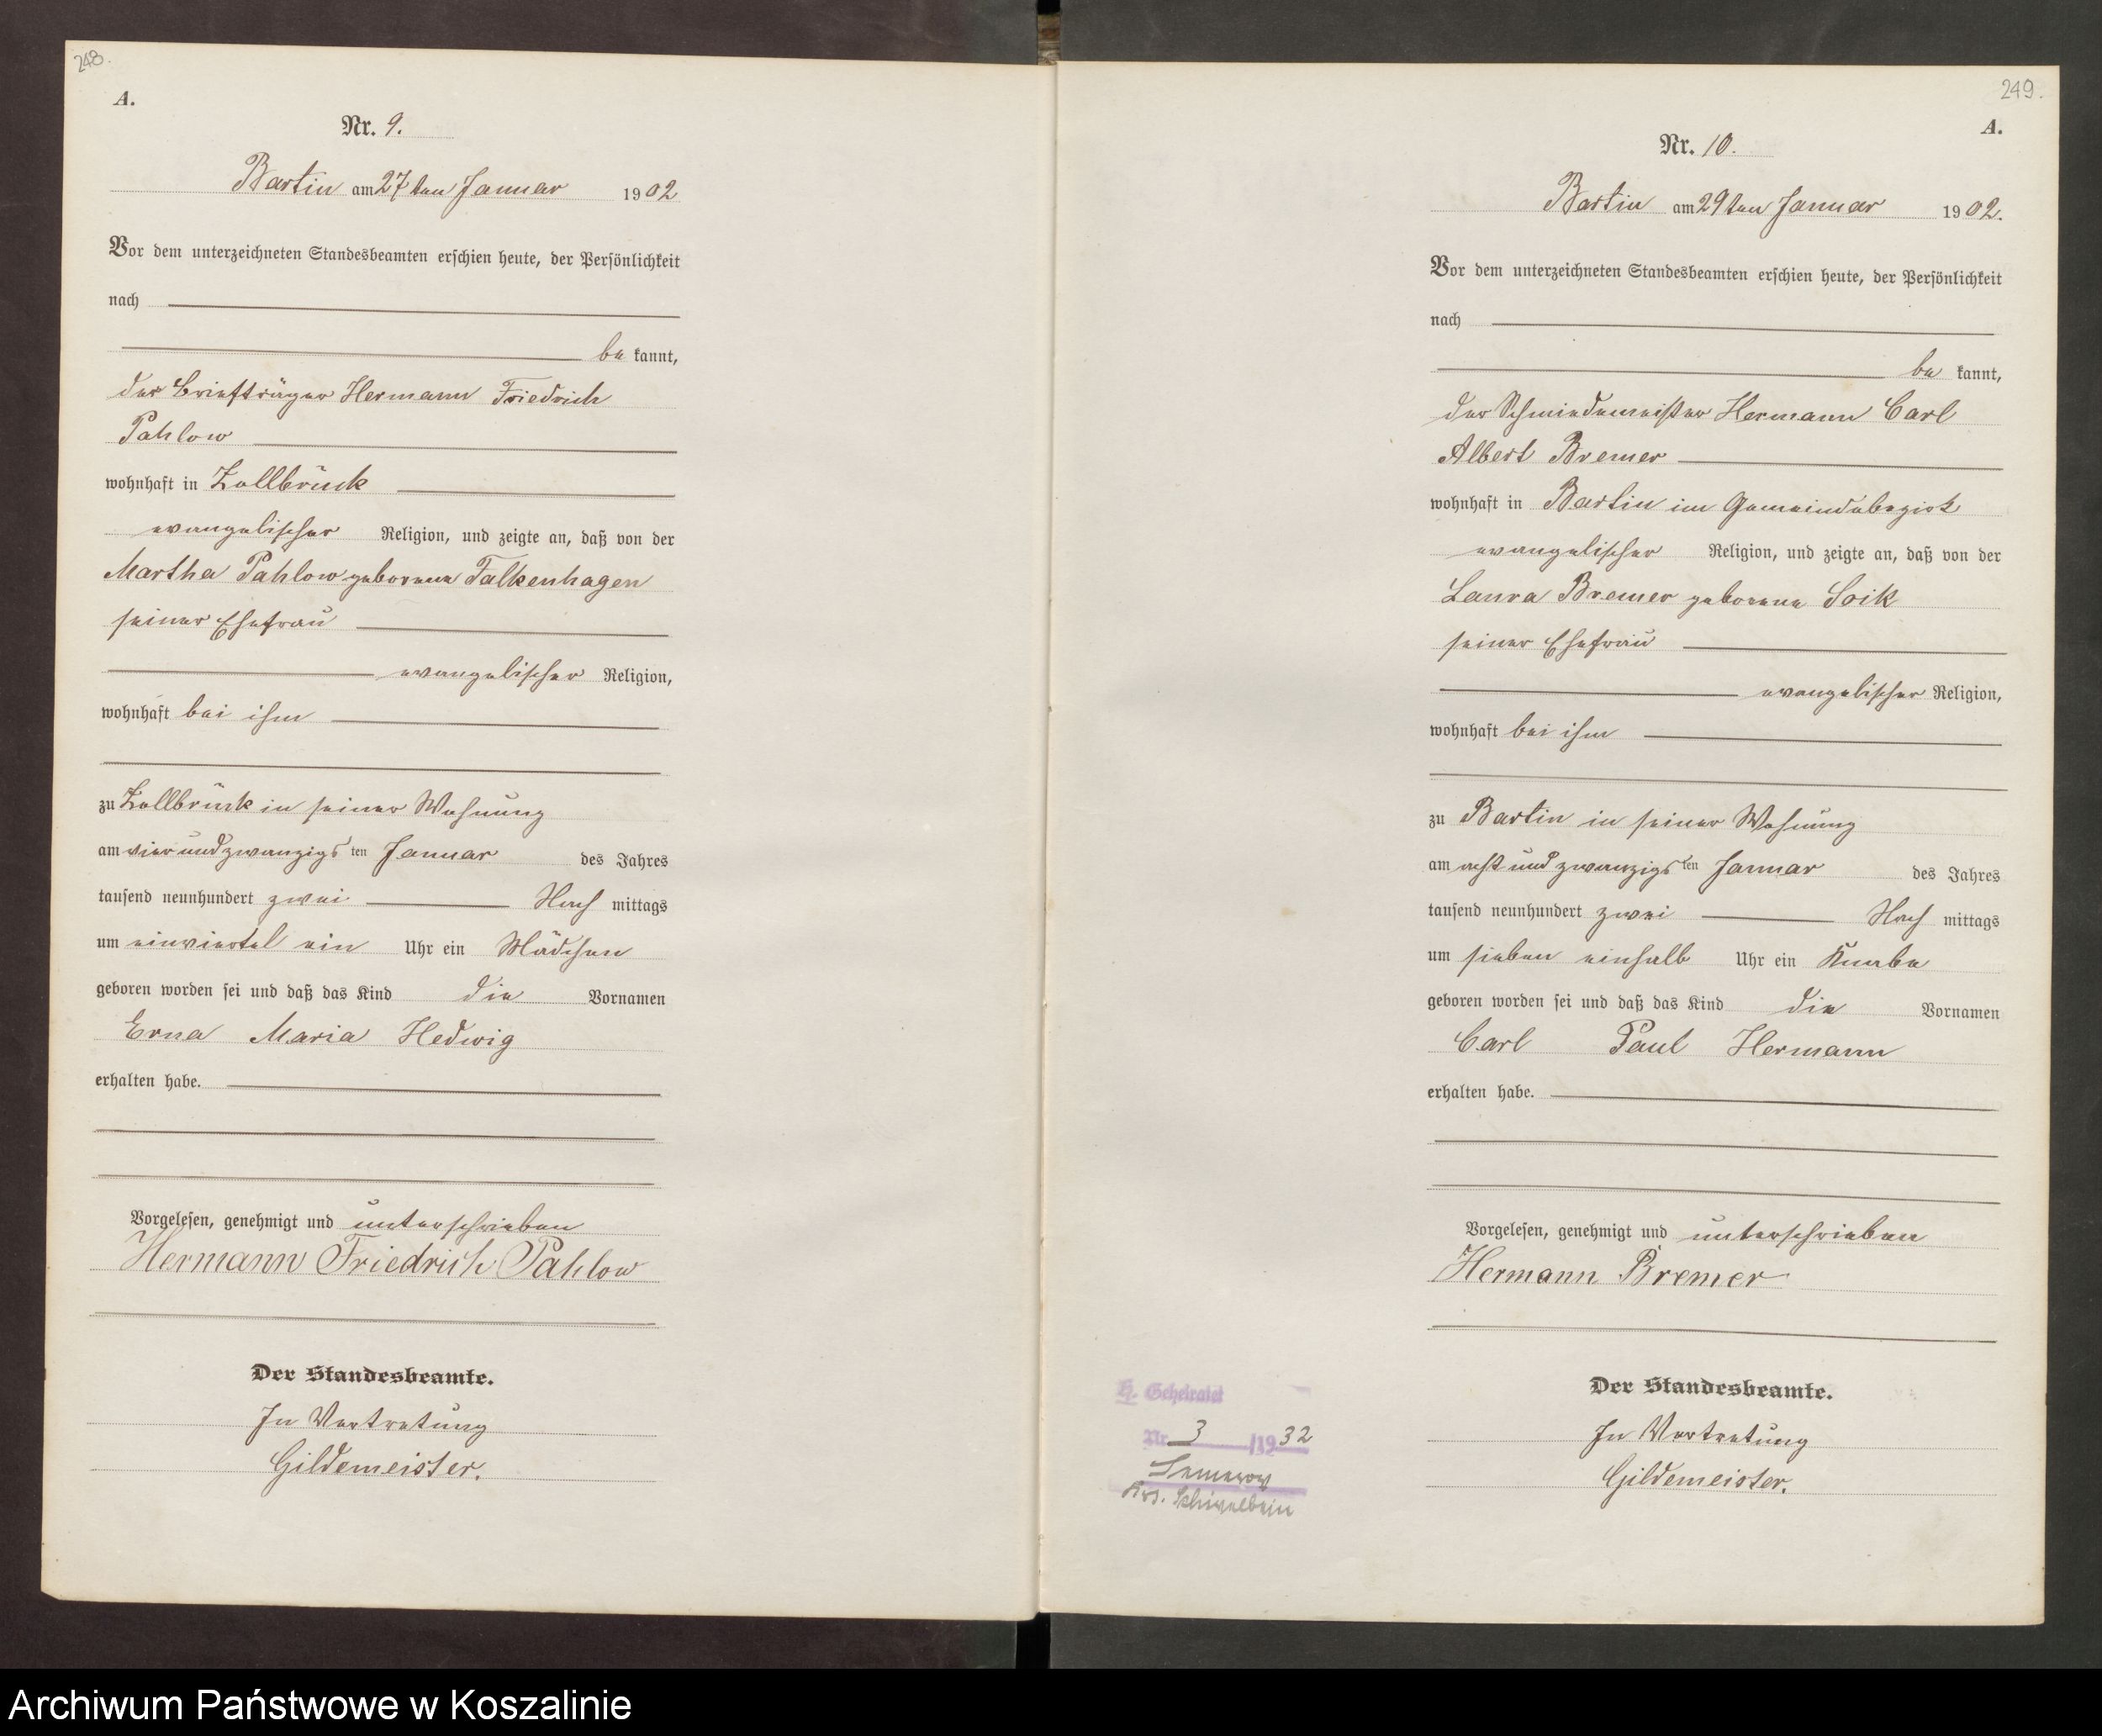 248.
A.
Nr. 9.
Bartin am 27ten Januar 1902
Vor dem unterzeichneten Standesbeamten erschien heute, der Persönlichkeit
nach
be kannt,
der Briefträger Hermann Friedrich
Pahlow
wohnhaft in Zollbrück
evangelischer Religion, und zeigte an, daß von der
Martha Pahlow geborene Falkenhagen
seiner Ehefrau
evangelischer Religion,
wohnhaft bei ihm
zu Zollbrück in seiner Wohnung
am vier und zwanzigs ten Januar des Jahres
tausend neunhundert zwei Nach mittags
um einviertel ein Uhr ein Mädchen
geboren worden sei und daß das Kind die Vornamen
Erna Maria Hedwig
erhalten habe.
Vorgelesen, genehmigt und unterschrieben
Hermann Friedrich Pahlow
Der Standesbeamte.
In Vertretung
Gildemeister.
249.
A.
Nr. 10.
Bartin am 29ten Januar 1902.
Vor dem unterzeichneten Standesbeamten erschien heute, der Persönlichkeit
nach
be kannt,
der Schmiedemeister Hermann Carl
Albert Bremer
wohnhaft in Bartin im Gemeindebezirk
evangelischer Religion, und zeigte an, daß von der
Laura Bremer geborene Soik
seiner Ehefrau
evangelischer Religion,
wohnhaft bei ihm
zu Bartin in seiner Wohnung
am acht und zwanzigs ten Januar des Jahres
tausend neunhundert zwei Nach mittags
um sieben einhalb Uhr ein Knabe
geboren worden sei und daß das Kind die Vornamen
Carl Paul Hermann
erhalten habe.
Vorgelesen, genehmigt und unterschrieben
Hermann Bremer
Der Standesbeamte.
In Vertretung
Gildemeister.
Nr. 3 /1932
Krs. Schivelbein
Archiwum Państwowe w Koszalinie